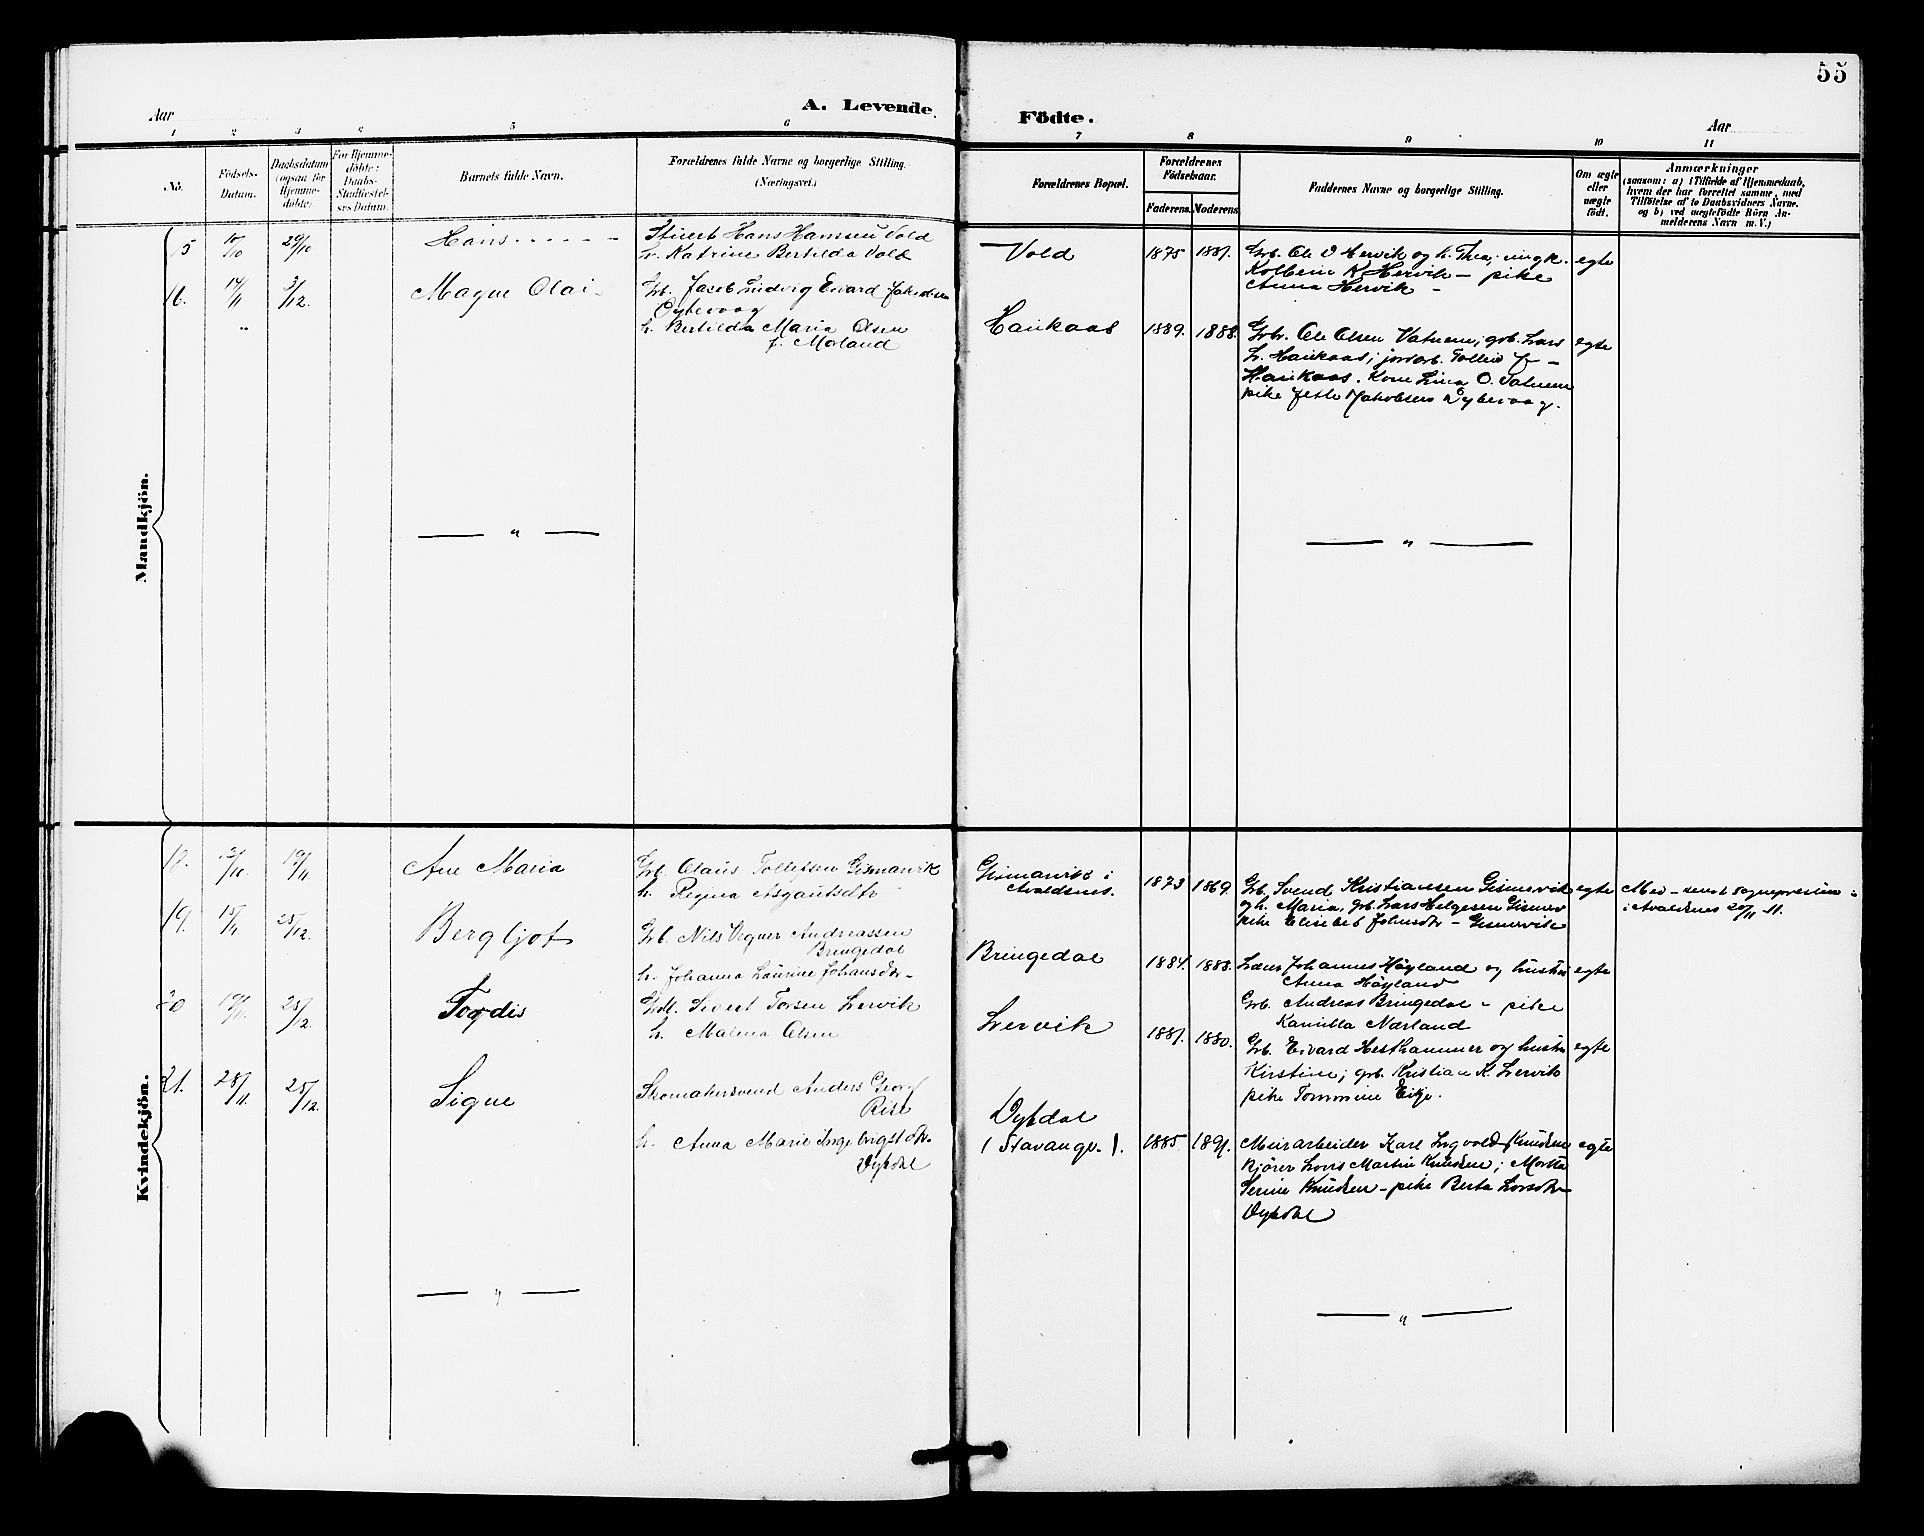 55
A. Levende
Födte.
Aar
Aar
1 2 3 4 5 6 7 8 9 10 11
No.
Födsels-
Datum.
Daabsdatum
(ogsaa for
Hjemme-
döbte)
For Hjemme-
döbte:
Daabs-
Stadfæstel-
ses Datum.
Barnets fulde Navn.
Forældrenes fulde Navne og borgerlige Stilling.
(Næringsvei.)
Forældrenes Bopæl.
Forældrenes
Födselsaar.
Faderens. Moderens.
Faddernes Navne og borgerlige Stilling.
Om ægte
eller
uægte
født.
Anmærkninger
(saasom: a) i Tilfælde af Hjemmedaab,
hvem der har forrettet samme, med
Tilföielse af to Daabsvidners Navne,
og b) ved uægtefödte Börn An-
melderens Navn m. V.)
Mandkjön.
15 10/10 29/10 Hans
Hans Hansen Vold
h. Katrine Bertilda Vold
Vold 1875 1881.
Grb. Ole V Hervik og h. Thea; ungk.
Kolbein K Hervik – pike
Anna Hervik –
egte
16. 14/11 3/12. Magne Olai
Grb. Jacob Ludvig Edvard Jakobsen
Dybevaag
h. Bertilda Maria Olsen
f. Morland
Haukaas 1889. 1888.
Grbr. Ole Olsen Vatnem; grb. Lars
L. Haukaas; jordarb. Tollev
Haukaas. Kone Lina O. Vatnem
pike Jakobsen Dybevaag.
egte
— " —
— " —
Kvindekjön.
18. 12/11. 19/11 Ane Maria
Grb. Olaus Tollefsen Gismarvik
h. Regina Asgautsdtr
Gismarvik i
Avaldsnes. 1873 1869.
Grb. Svend Kristiansen Gismervik
og h. Maria, grb. Lars Helgesen Gismerv
pike Elisabet Johnsdtr – Gismervik
egte
Med – sendt sogneprestene
i Avaldsnes 20/11 11.
19. 15/11 25/12. Bergljot
Grb. Nils Vegner Andreassen
Bringedal
h. Johanna Laurine Johansdtr –
Bringedal 1884. 1888.
Lærer Johannes Høyland og hustru
Anna Høyland
Grb. Andreas Bringedal – pike
Kamilla Nærland
egte
20 19/11. 25/12. Tordis
Grbl. Sivert Torsen Lervik
h. Malena Olsen
Lervik 1881. 1880.
Grb. Edvard Hesthammer og hustru
Kirstine; grb. Kristian K. Lervik
pike Tommine Eikje.
egte
21. 28/11. 25/12. Signe
Skomakersvend Anders Georg
Rise
h. Anna Marie Ingebrigtsdtr.
Dybdal
Dybdal
(Stavanger). 1885 1891.
Murarbeider Karl Ingvald Knudsen
Kjører Lovis Martin Knudsen; Marta
Serine Knudsen – pike Berta Larsdtr –
Dybdal
egte
— " —
— " —